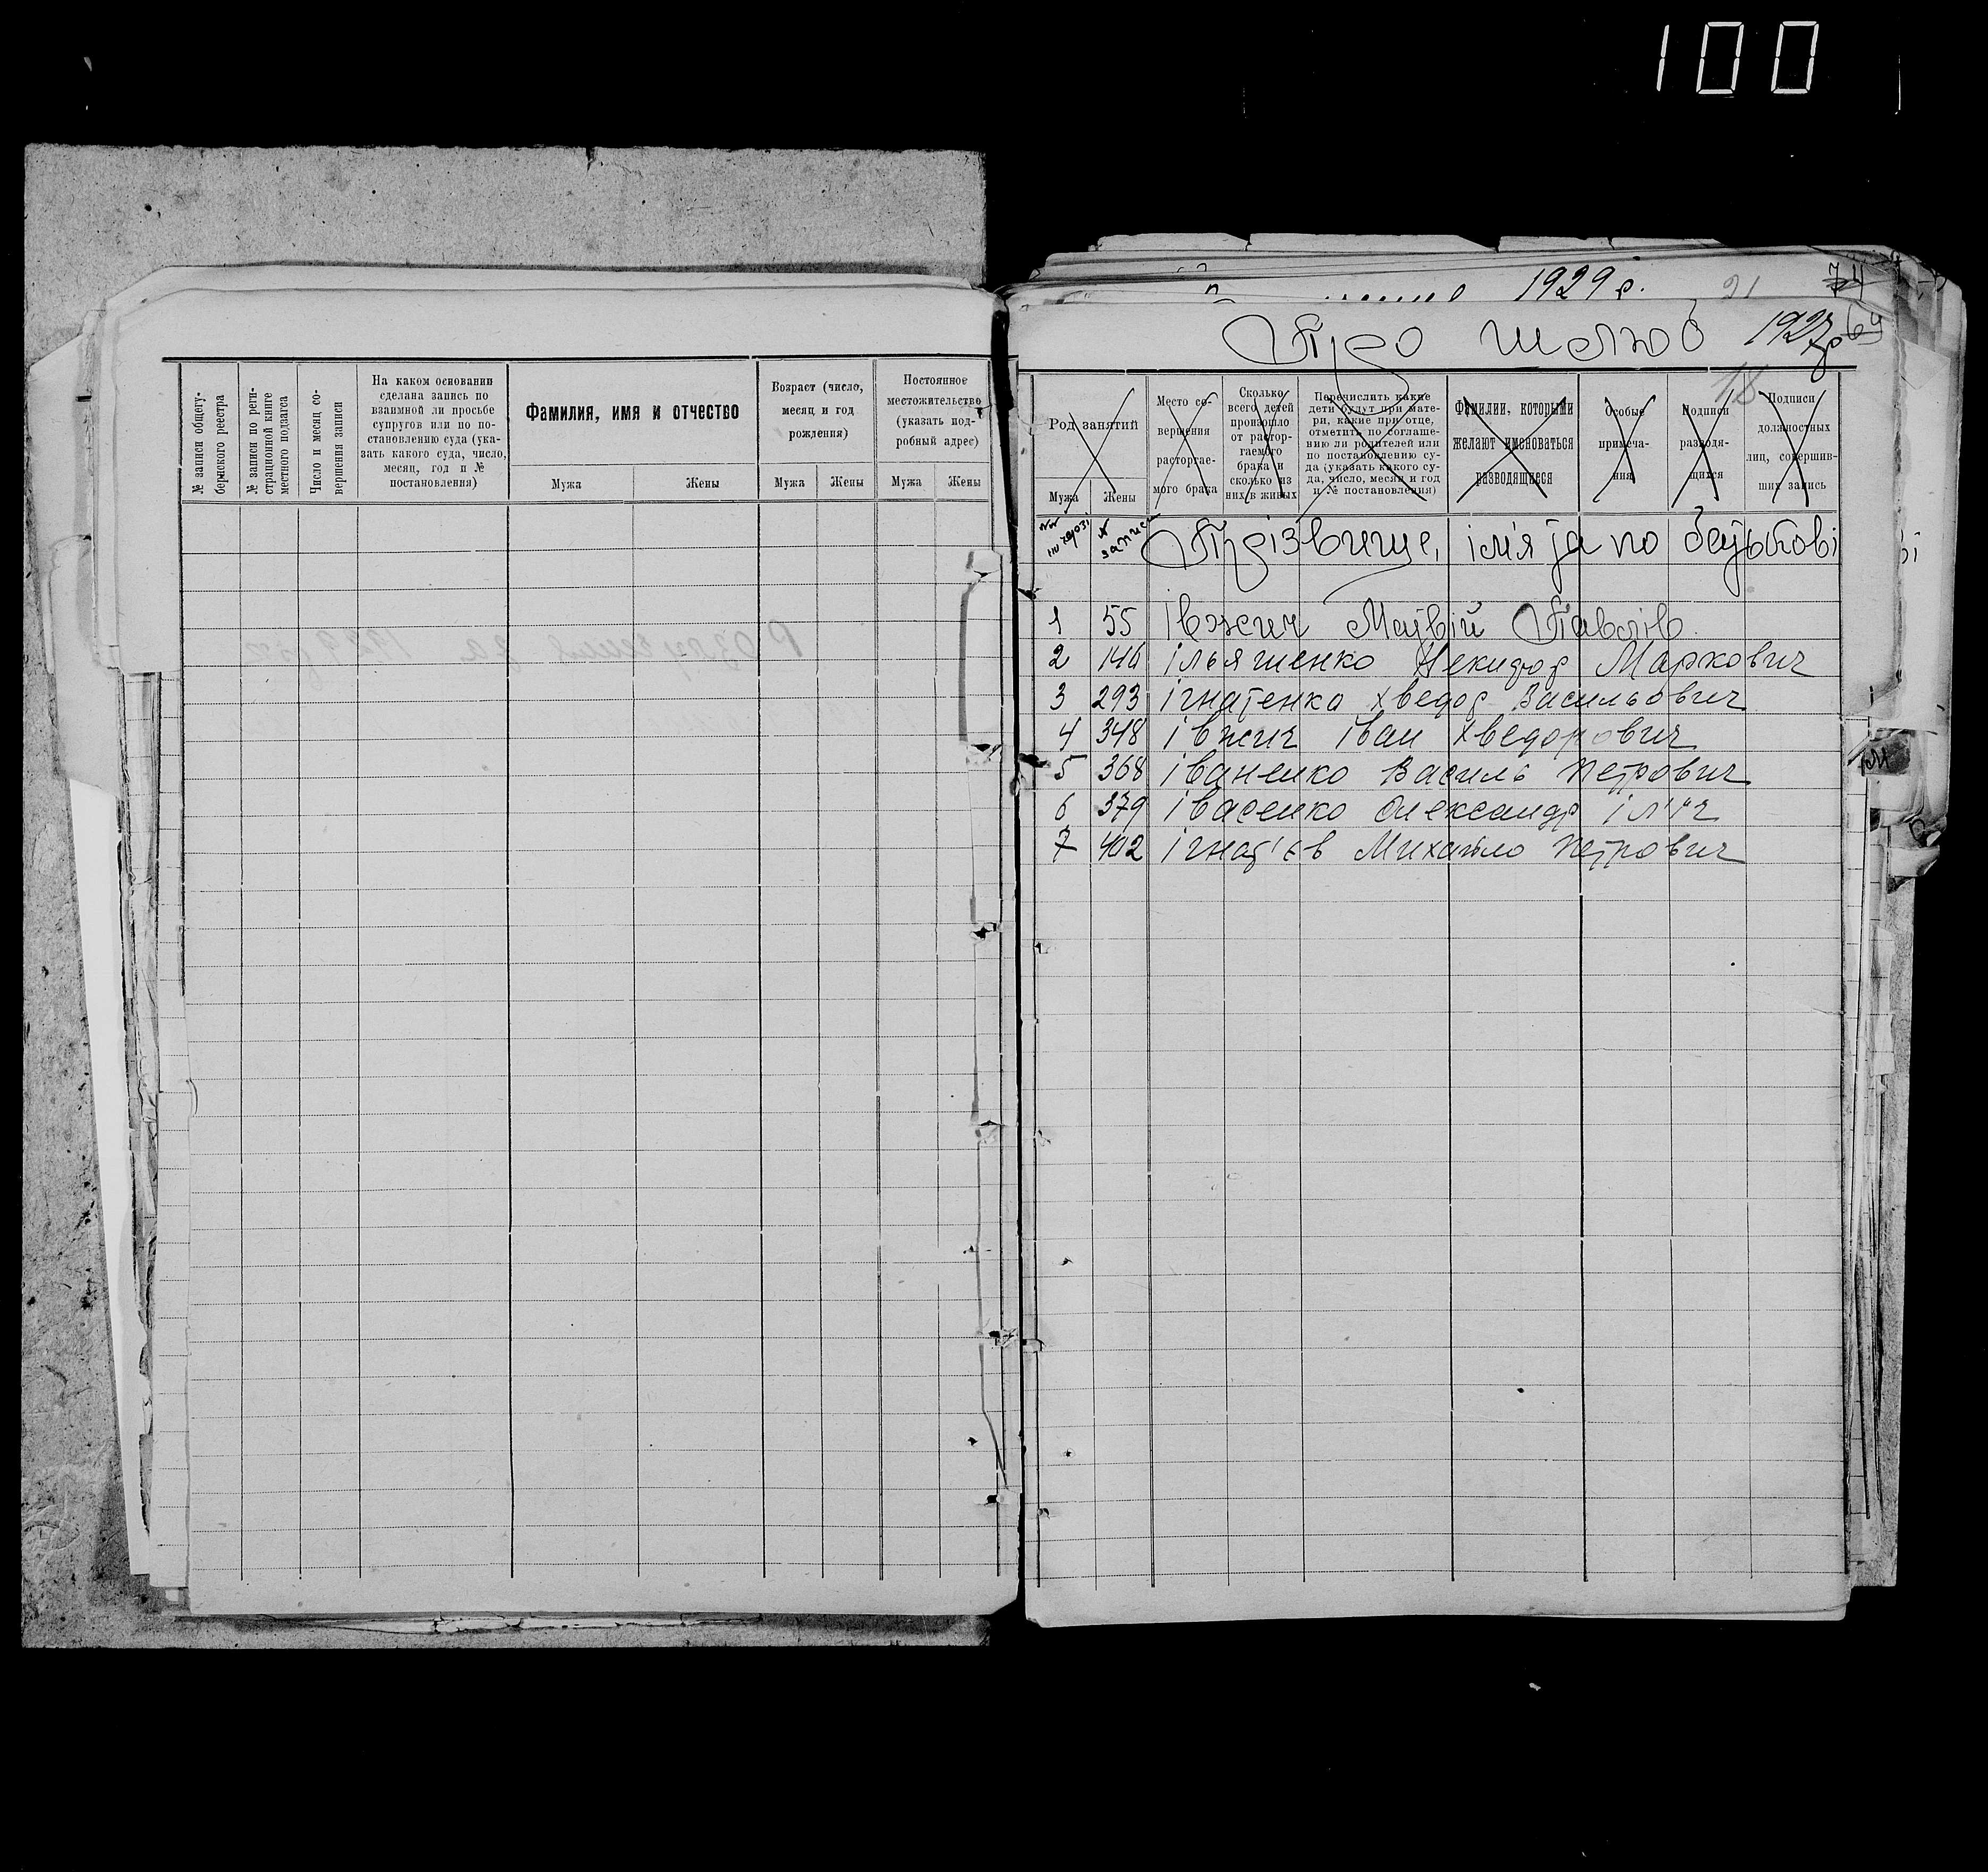 100
1929 р.
21
74
Про шлюб 1927 р
64
18
№ записи общегу-
бернского реестра
№ записи по реги-
страционной книге
местного подзагса
Число и месяц со-
вершения записи
На каком основании
сделана запись по
взаимной ли просьбе
супругов или по по-
становлению суда (ука-
зать какого суда, число,
месяц, год и №
постановления)
Фамилия, имя и отчество
Мужа Жены
Возраст (число,
месяц и год
рождения)
Мужа Жены
Постоянное
местожительство
(указать под-
робный адрес)
Мужа Жены
Розлучення за 1929 рік
Род занятий
Мужа Жены
Место со-
вершения
расторгае-
мого брака
Сколько
всего детей
произошло
от растор-
гаемого
брака и
сколько из
них в живых
Перечислить какие
дети будут при мате-
ри, какие при отце,
отметить по соглаше-
нию ли родителей или
по постановлению су-
да (указать какого су-
да, число, месяц и год
и № постановления)
Фамилии, которыми
желают именоваться
разводящиеся
Особые
примеча-
ния
Подписи
разводя-
щихся
Подписи
должностных
лиц, совершив-
ших запись
№№ по черзі № запису Прізвище, ім'я та по батькові
1 55 Івжич Матвій Павлів.
2 146 Ільяшенко Некифор Маркович
3 293 Ігнатенко Хведор Васильович
4 348 Івжич Іван Хведорович
5 368 Іваненко Василь Петрович
6 379 Івасенко Олександр Ілліч
7 402 Ігнат'єв Михайло Петрович